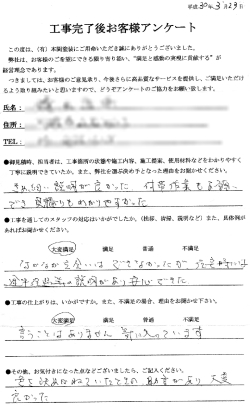 平成30年3月29日
工事完了後お客様アンケート
この度は、(有)本間塗装にご用命いただき誠にありがとうございました。
弊社は、お客様のご要望にできる限り寄り添い、"満足と感動の実現に貢献する"が
経営理念であります。
つきましては、お客様のご意見承り、今後さらに高品質なサービスを提供し、ご満足いただけ
るよう取り組みたいと思いますので、どうぞアンケートのご協力をお願い致します。
氏名：
住所：
TEL：
●御見積時、担当者は、工事箇所の状態や施工内容、施工提案、使用材料などをわかりやすく
丁寧に説明できていたか。また、弊社を選ぶ決め手となった理由をお聞かせください。
きめ細い説明が良かった
でき見積りもわかりやすかった
●工事を通じてのスタッフの対応はいかがでしたか。(挨拶、清掃、説明など)また、具体例が
あればお聞かせください。
大変満足 満足 普通 不満足
なかなか立会いはできなかったが
説明があり安心できた
●工事の仕上がりは、いかがですか。また、不満足の場合、理由をお聞かせ下さい。
大変満足 満足 普通 不満足
言うことはありません 気に入っています
●その他、お気付きになった点などございましたら、ご記入ください。
色を決めかねていたときの助言があり大変
良かった